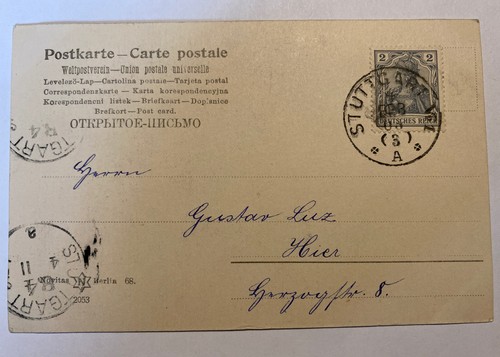 Postkarte — Carte postale
Weltpostverein — Union postale universelle
Levelező-Lap — Cartolina postale — Tarjeta postal
Correspondenzkarte — Karta korespondencyjna
Korespondenční listek — Briefkaart — Dopisnice
Brefkort — Post card.
ОТКРЫТОЕ-ПИСЬМО
2 2
DEUTSCHES REICH
STUTTGART
FEB
(3)
* A *
Herrn
Gustav Luz
Hier
Herzogstr. 8.
STUTTGART
4
11
Novitas N Berlin 68.
2053